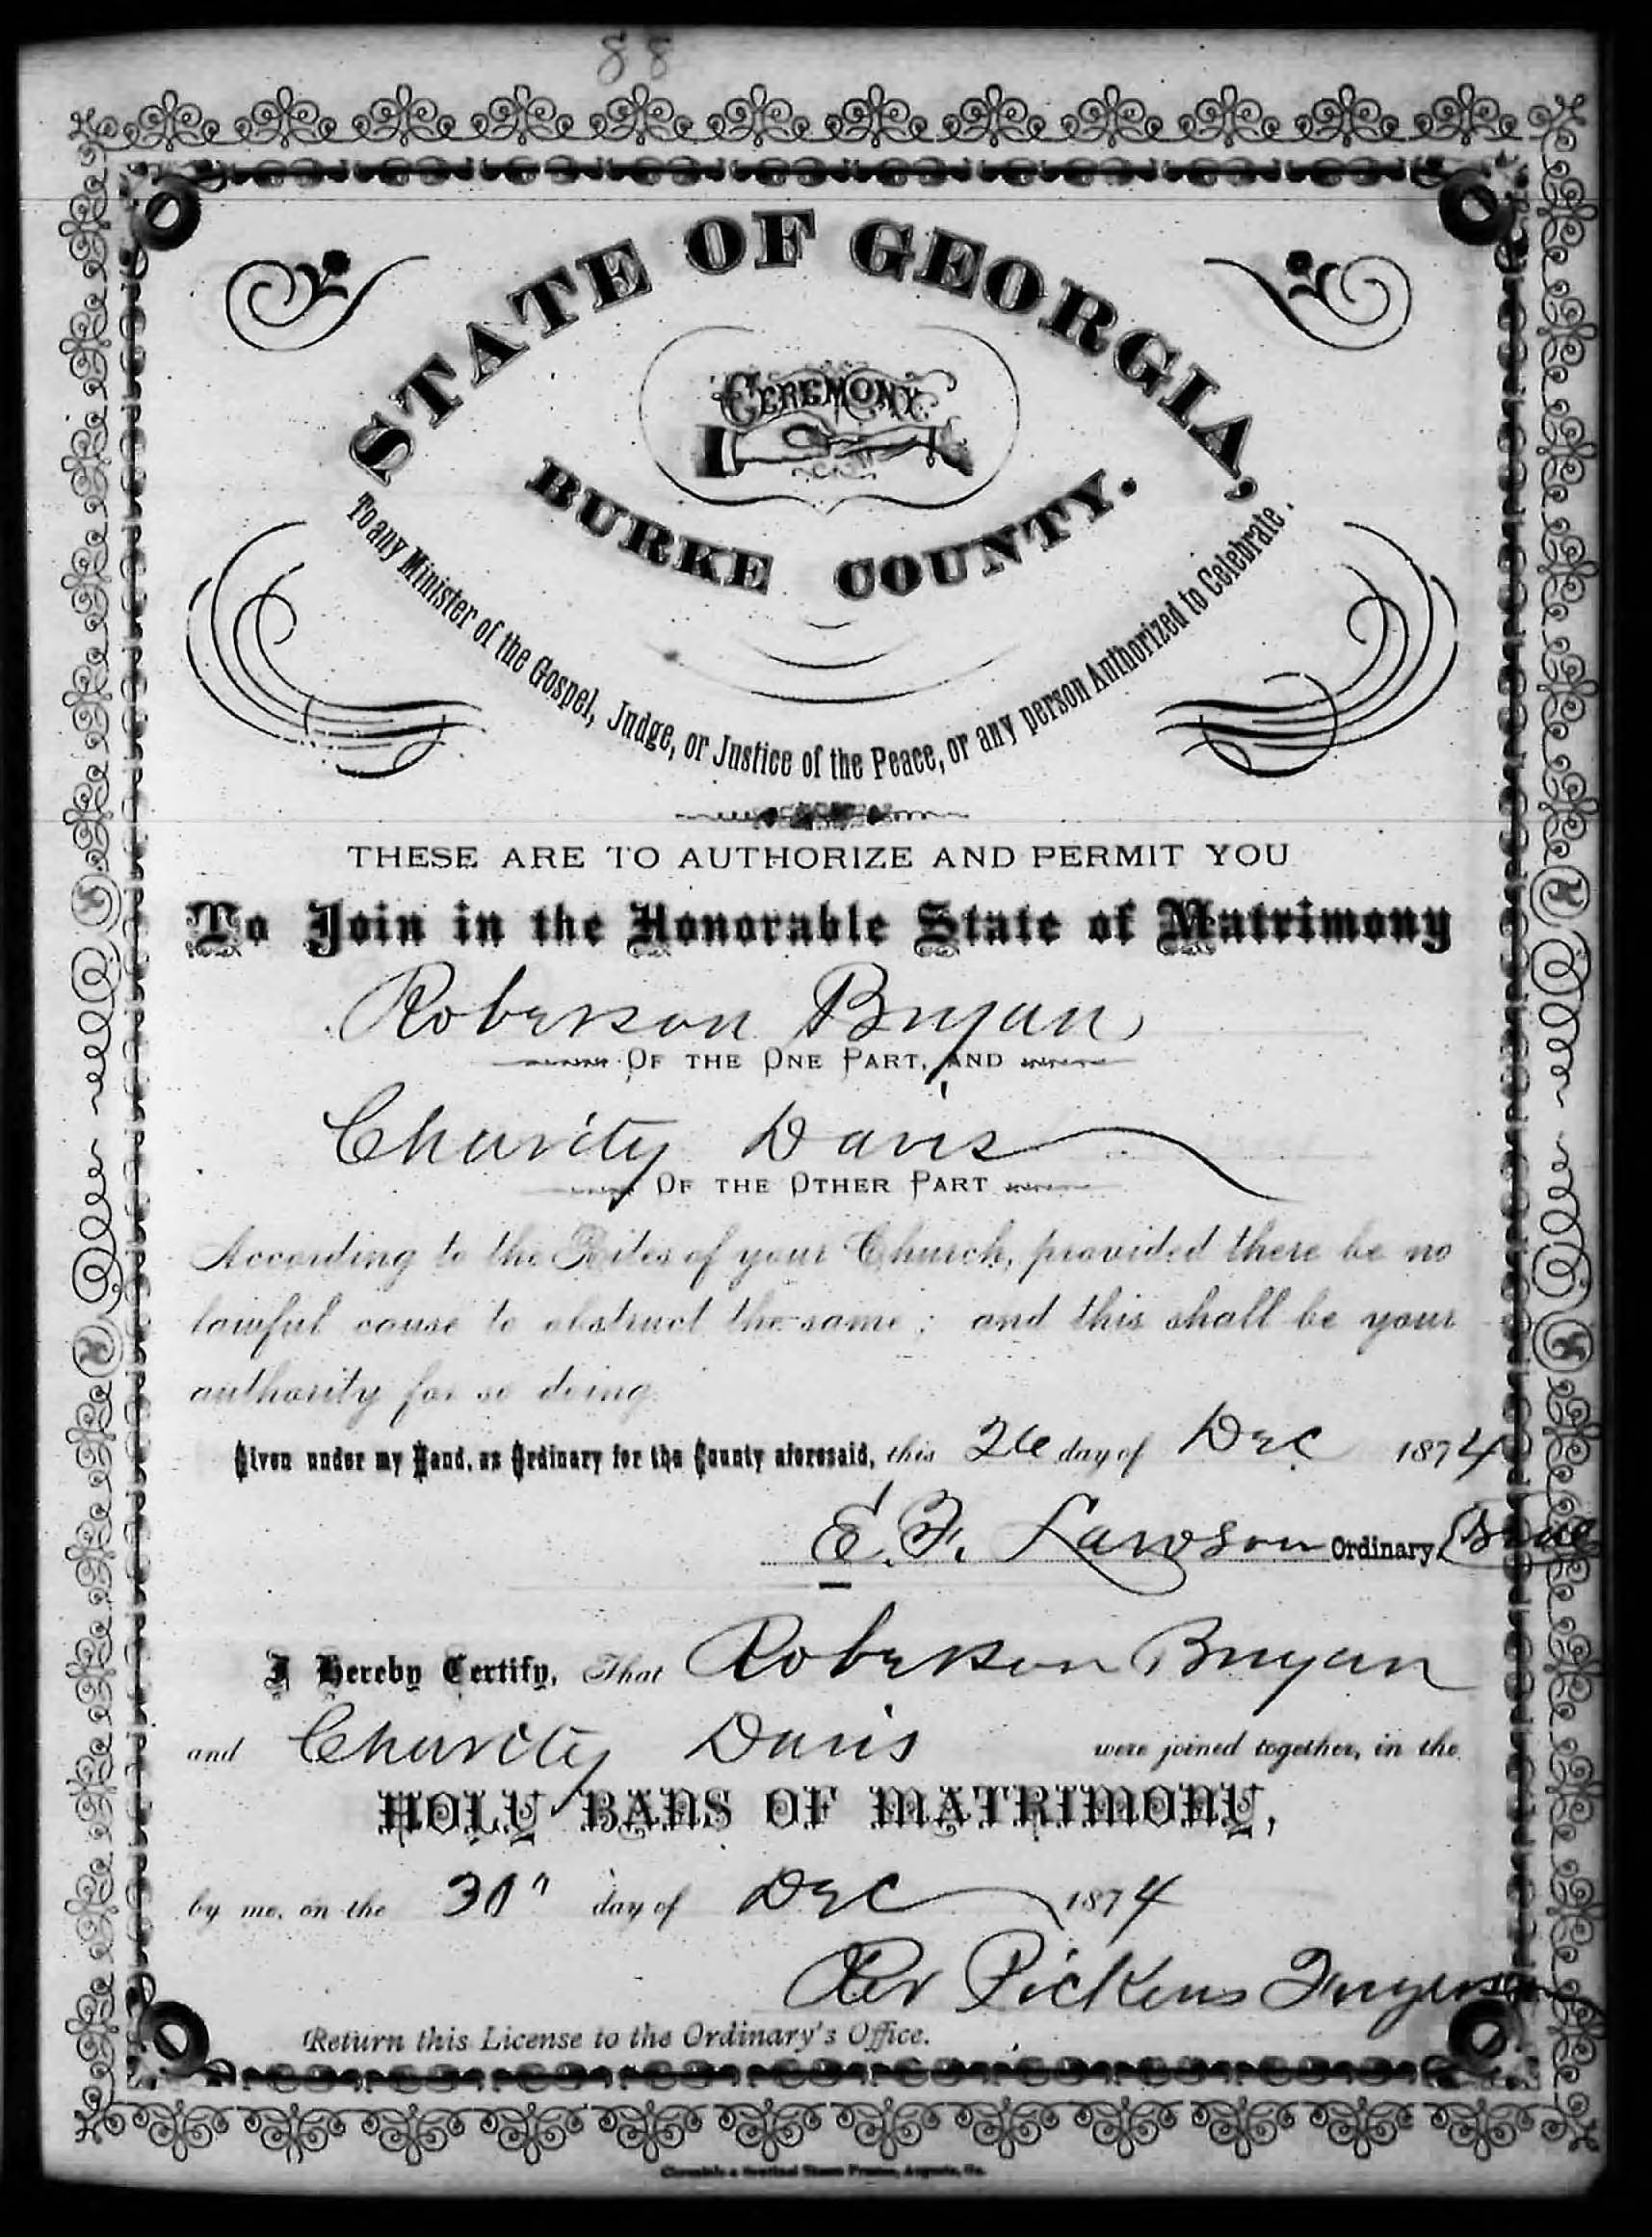 88
STATE OF GEORGIA,
CEREMONY.
BURKE COUNTY.
To any Minister of the Gospel, Judge, or Justice of the Peace, or any person Authorized to Celebrate.
THESE ARE TO AUTHORIZE AND PERMIT YOU
To Join in the Honorable State of Matrimony
Roberson Bryan
OF THE ONE PART, AND
Charity Davis
OF THE OTHER PART
According to the Rites of your Church, provided there be no
lawful cause to obstruct the same; and this shall be your
authority for so doing
Given under my Hand, as Ordinary for the County aforesaid, this 26 day of Dec 1874
E. F. Lawson Ordinary,
I Hereby Certify, That Roberson Bryan
and Charity Davis were joined together, in the
HOLY BANS OF MATRIMONY,
by me, on the 30" day of Dec 1874
Rev Pickens
Return this License to the Ordinary's Office.
Chronicle & Sentinel Steam Presses, Augusta, Ga.